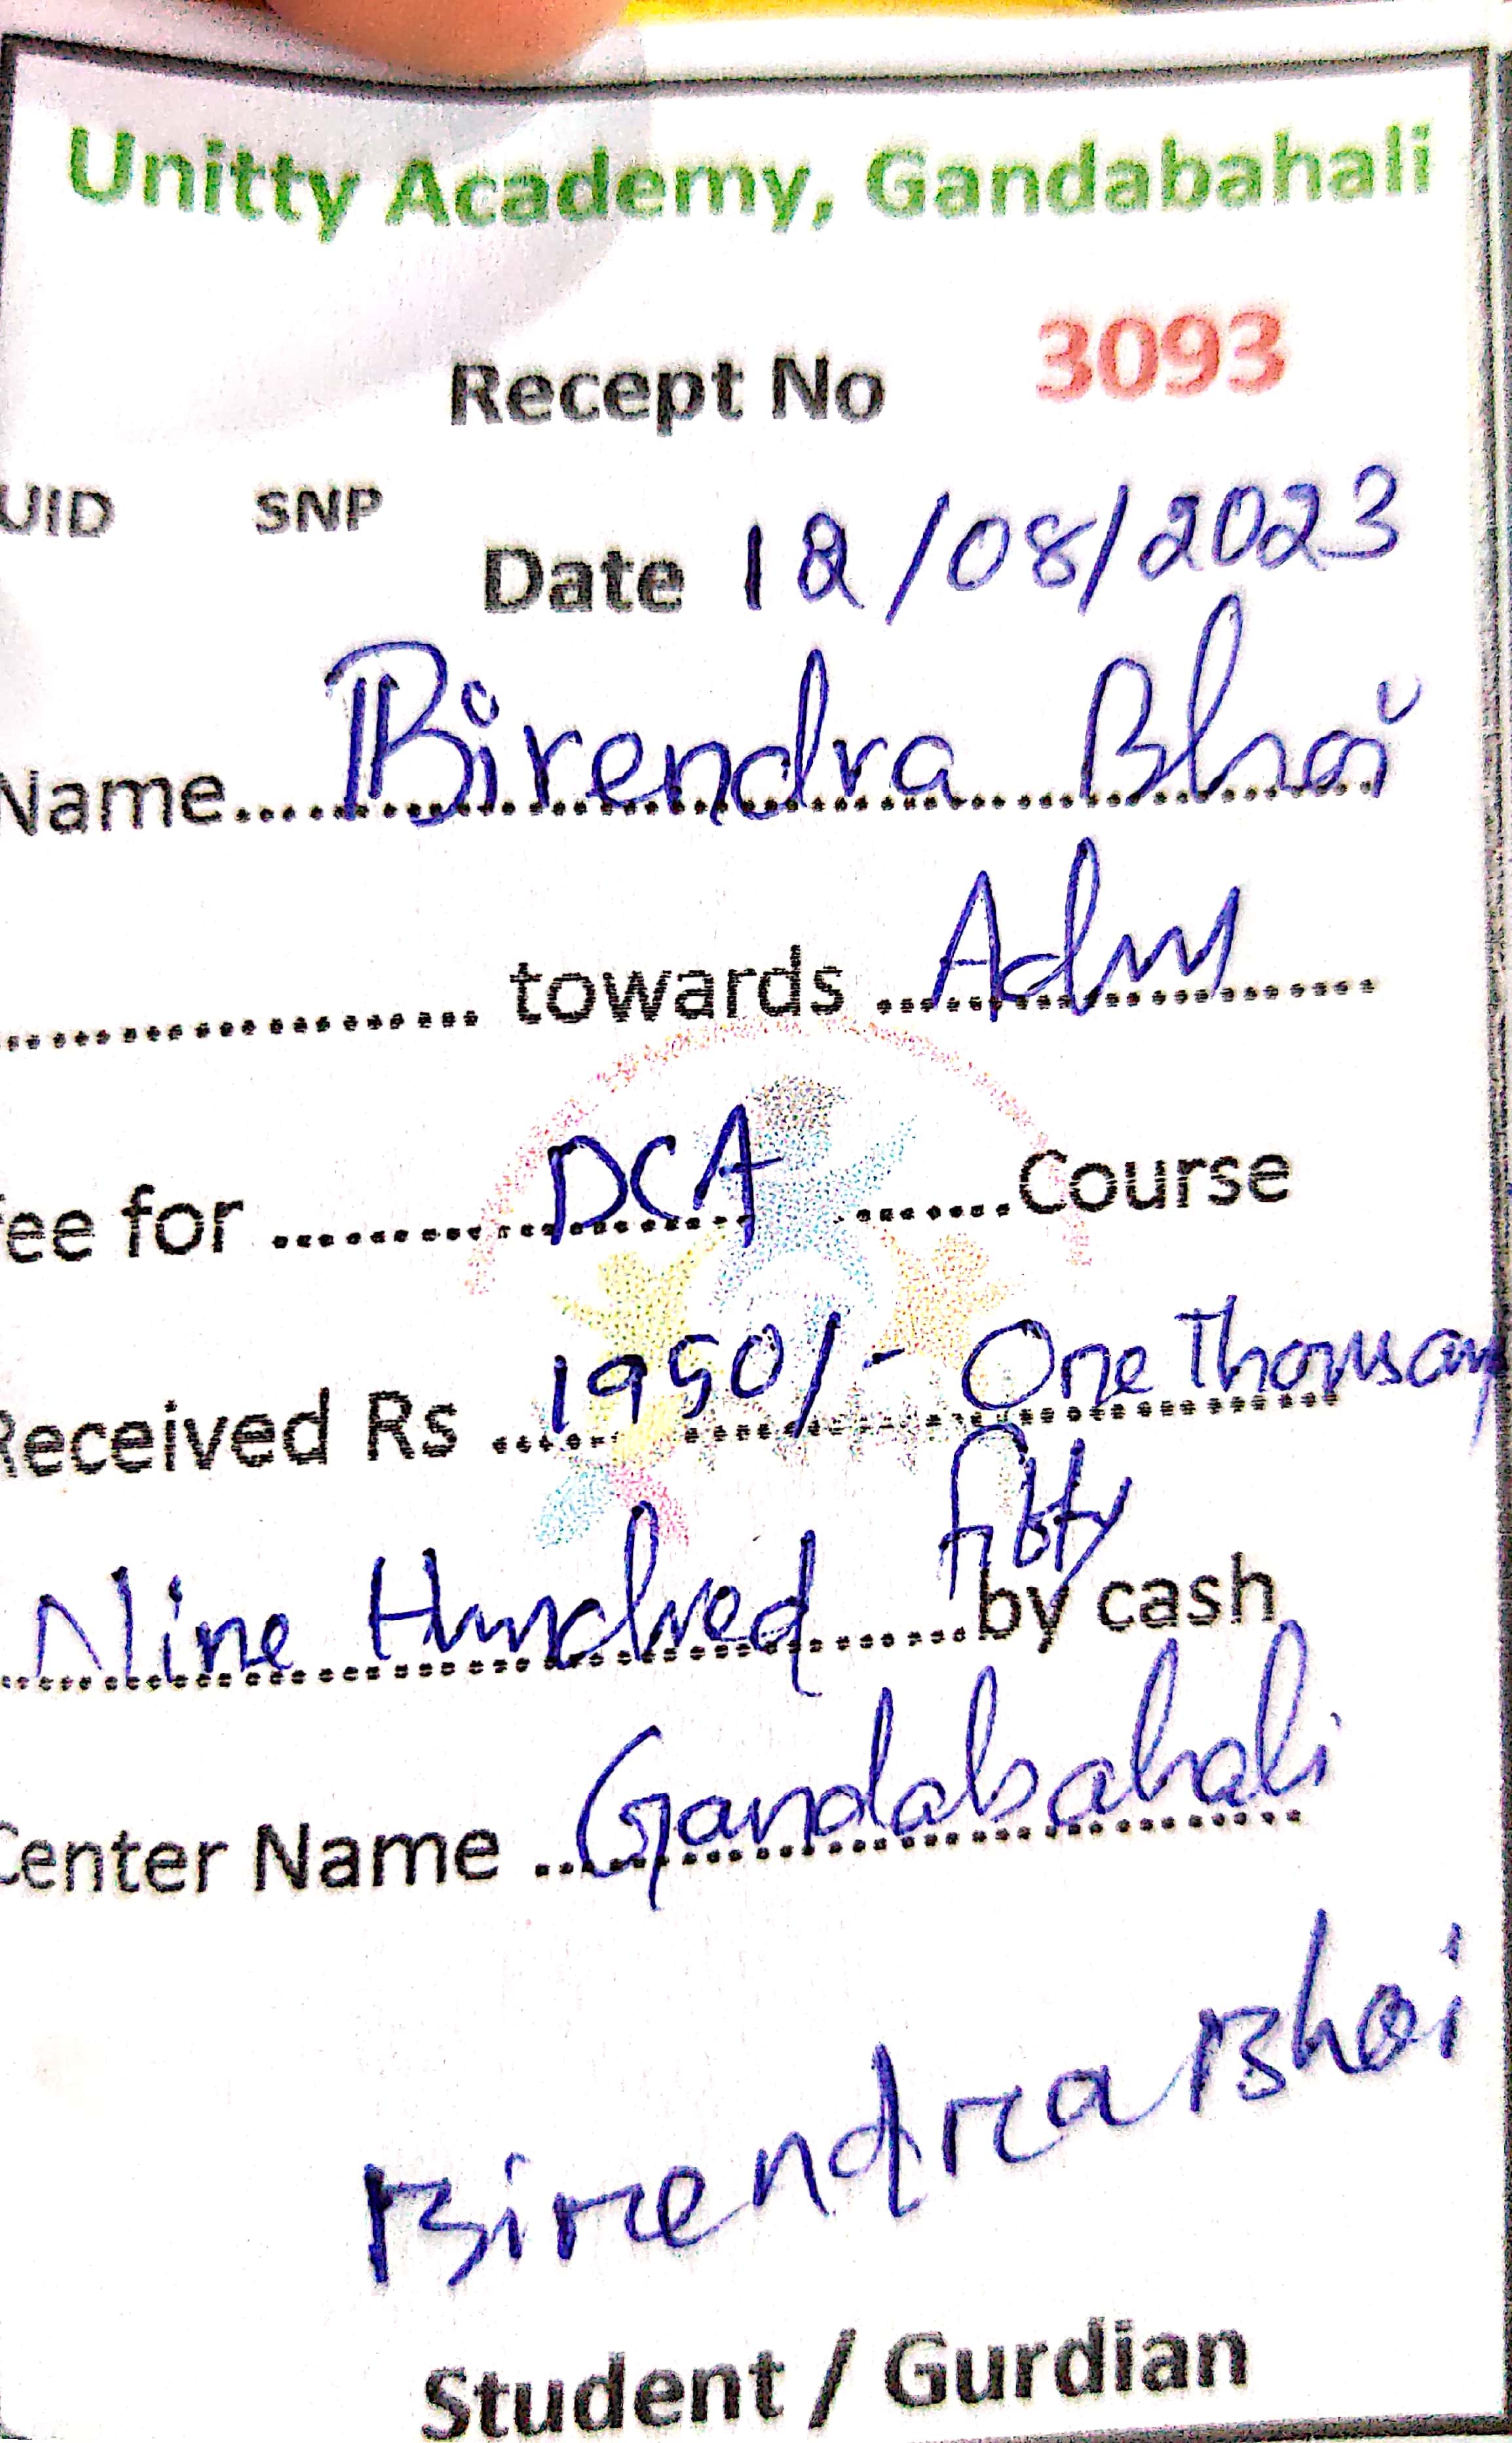 Unitty Academy, Gandabahali
Recept No 3093
UID SNP
Date 12/08/2023
Name.... Birendra Bhoi
.................... towards ... Adm ...........
fee for ............ DCA ........Course
Received Rs ... 1950/- One Thousan
fifty
Nine Hundred .......by cash
Center Name ... Gandabahali
Birendra Bhoi
Student / Gurdian